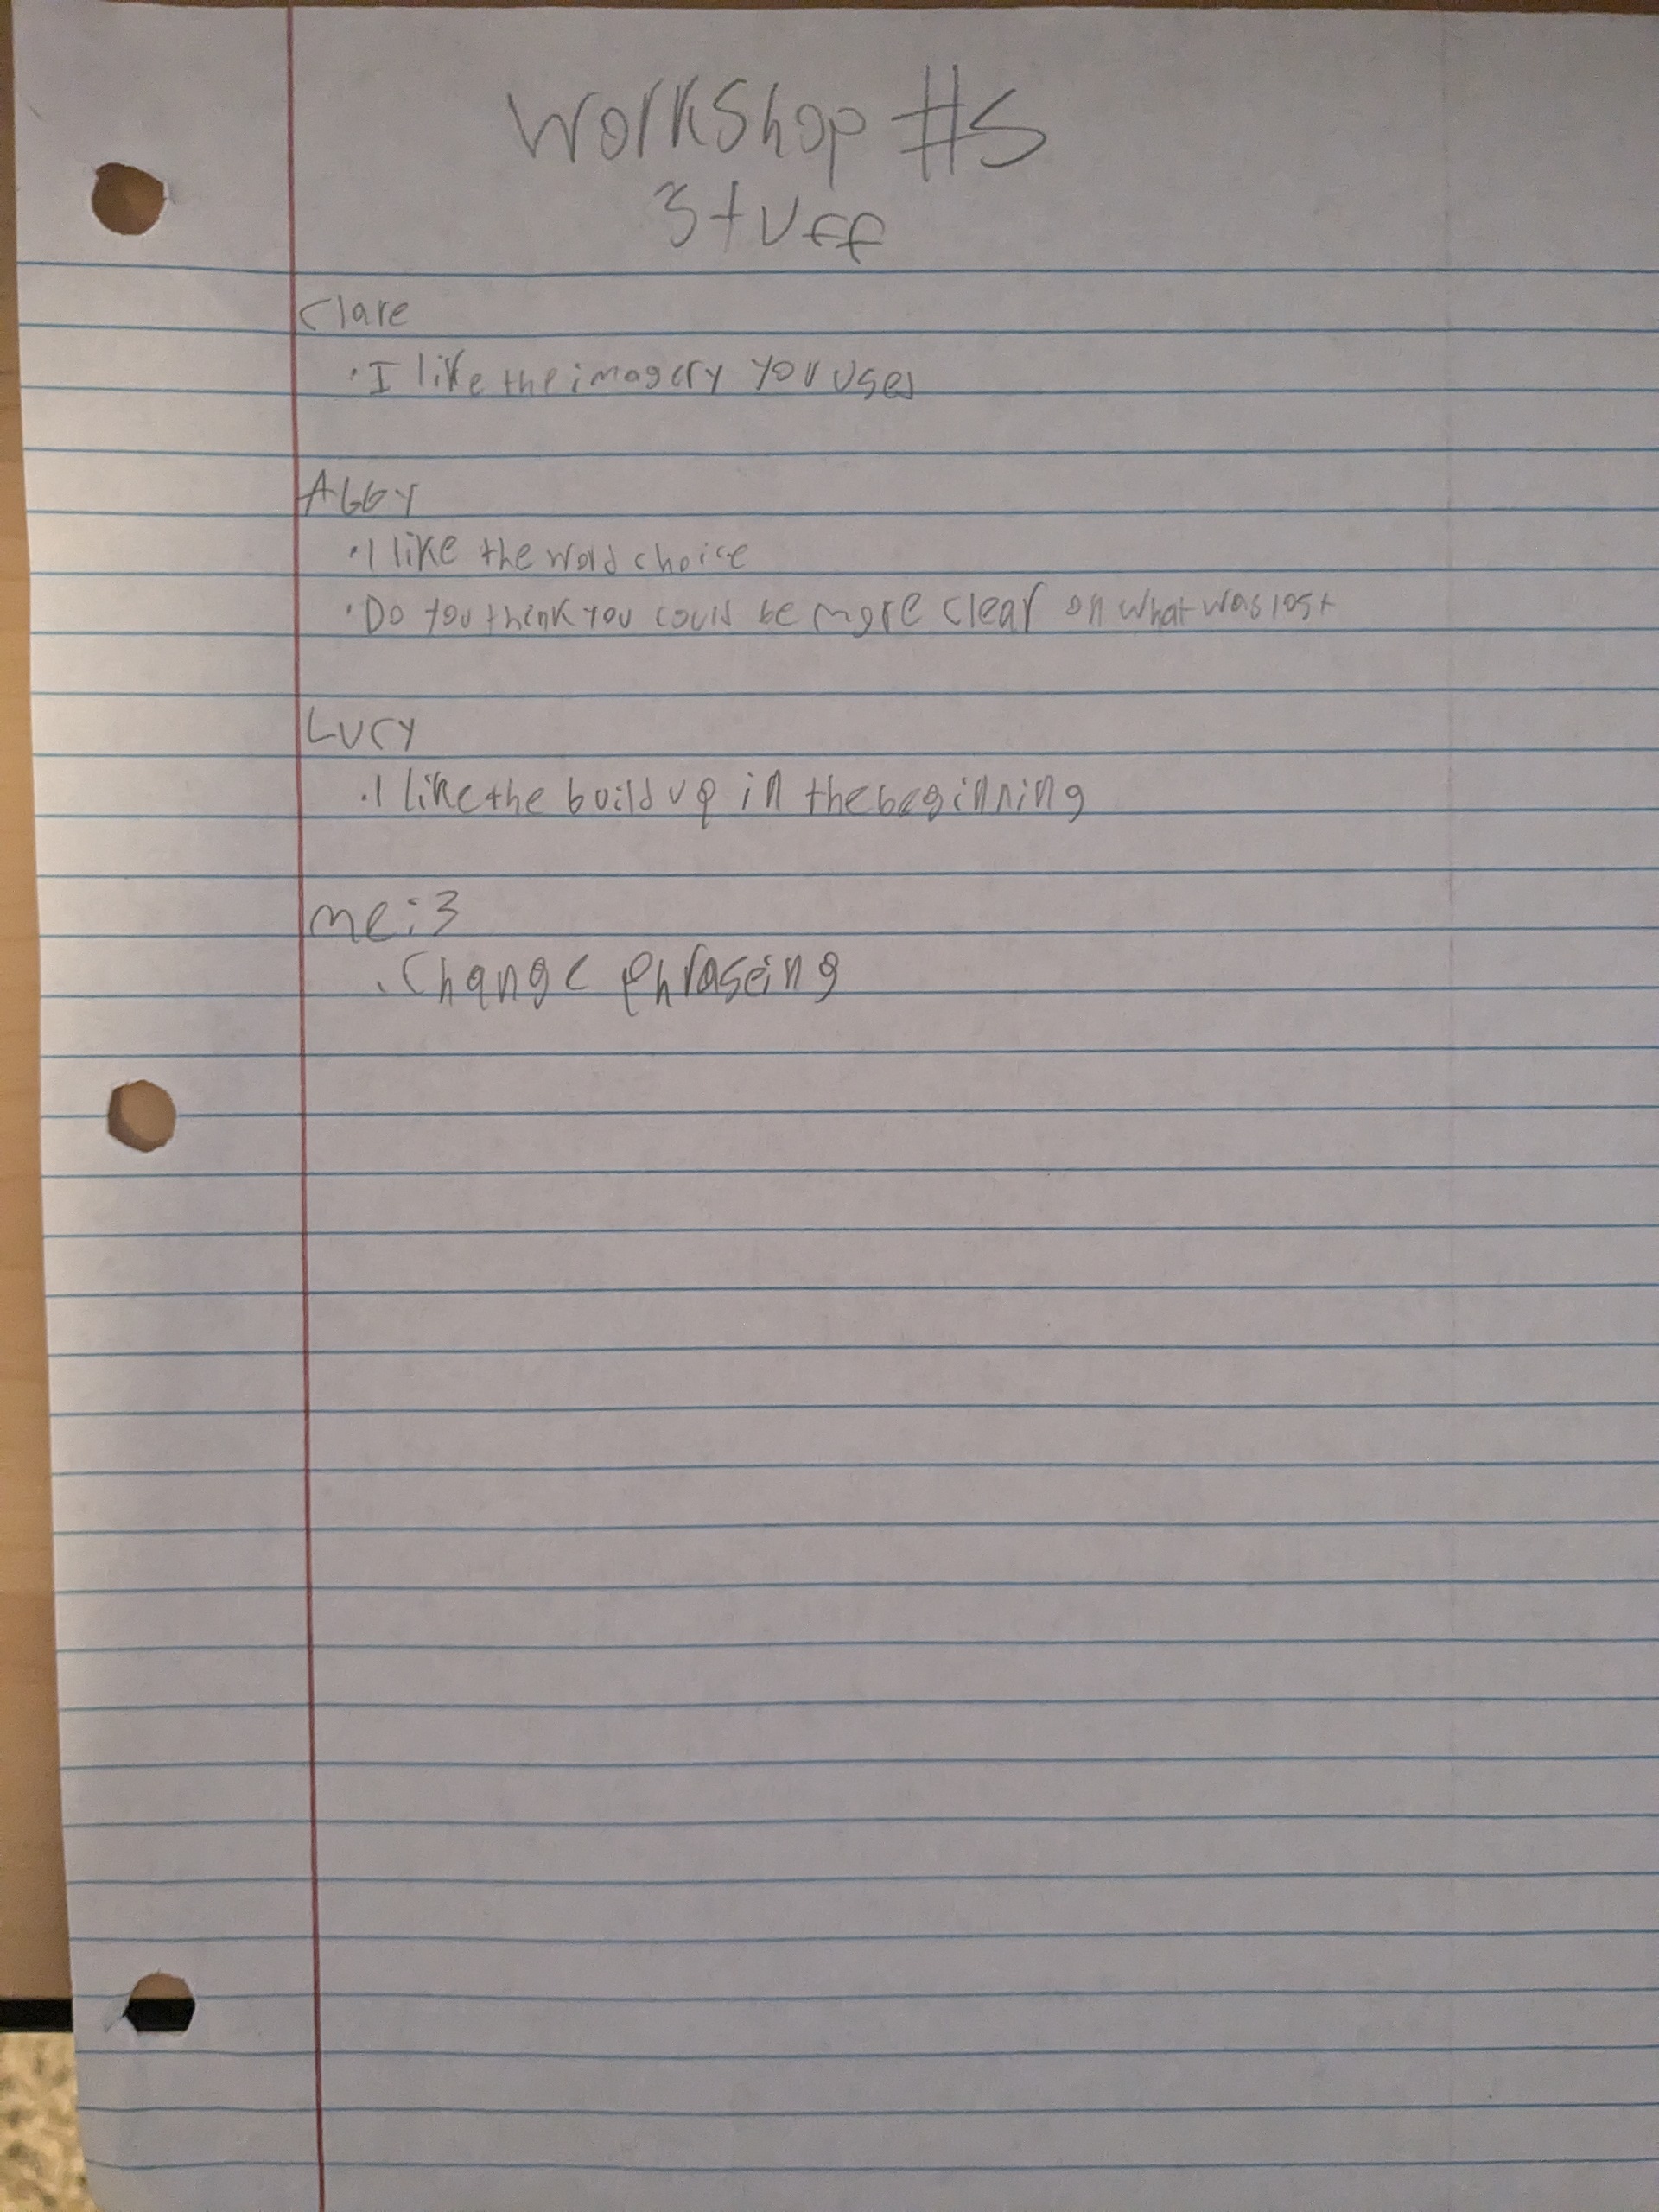 Workshop #5
Stuff
Clare
·I like the imagery you used
Abby
·I like the word choice
·Do you think you could be more clear on what was lost
Lucy
·I like the build up in the beginning
me:3
·Change phraseing